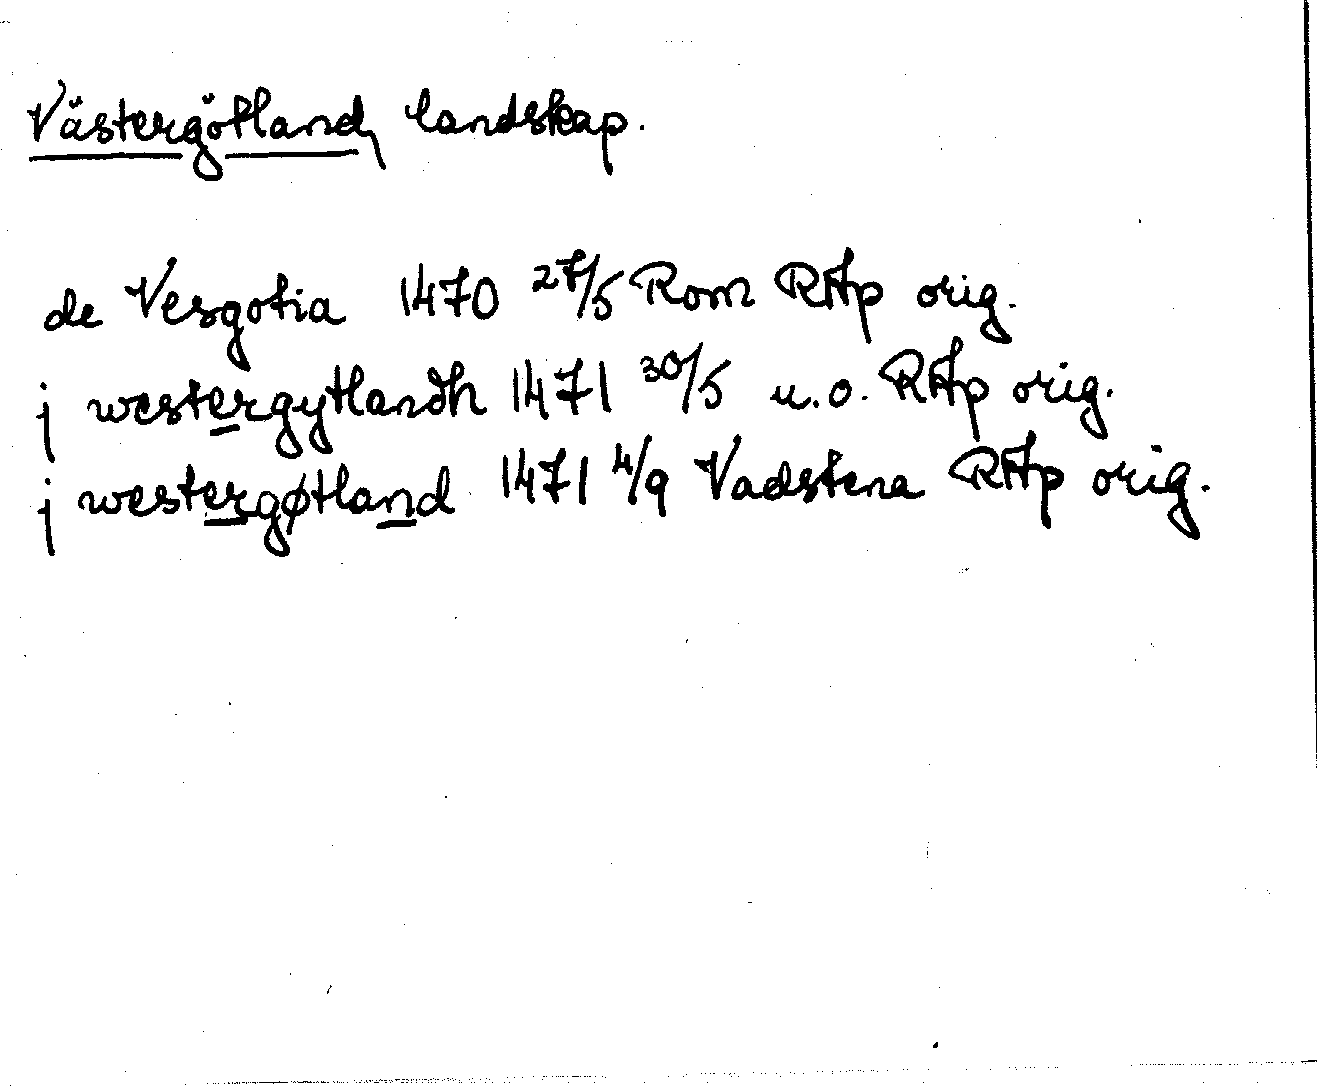 Västergötland, landskap.
de Vesgotia 1470 27/5 Rom RAp orig.
j westergytlandh 1471 30/5 u.o. RAp orig.
j westergøtland 1471 4/9 Vadstena RAp orig.